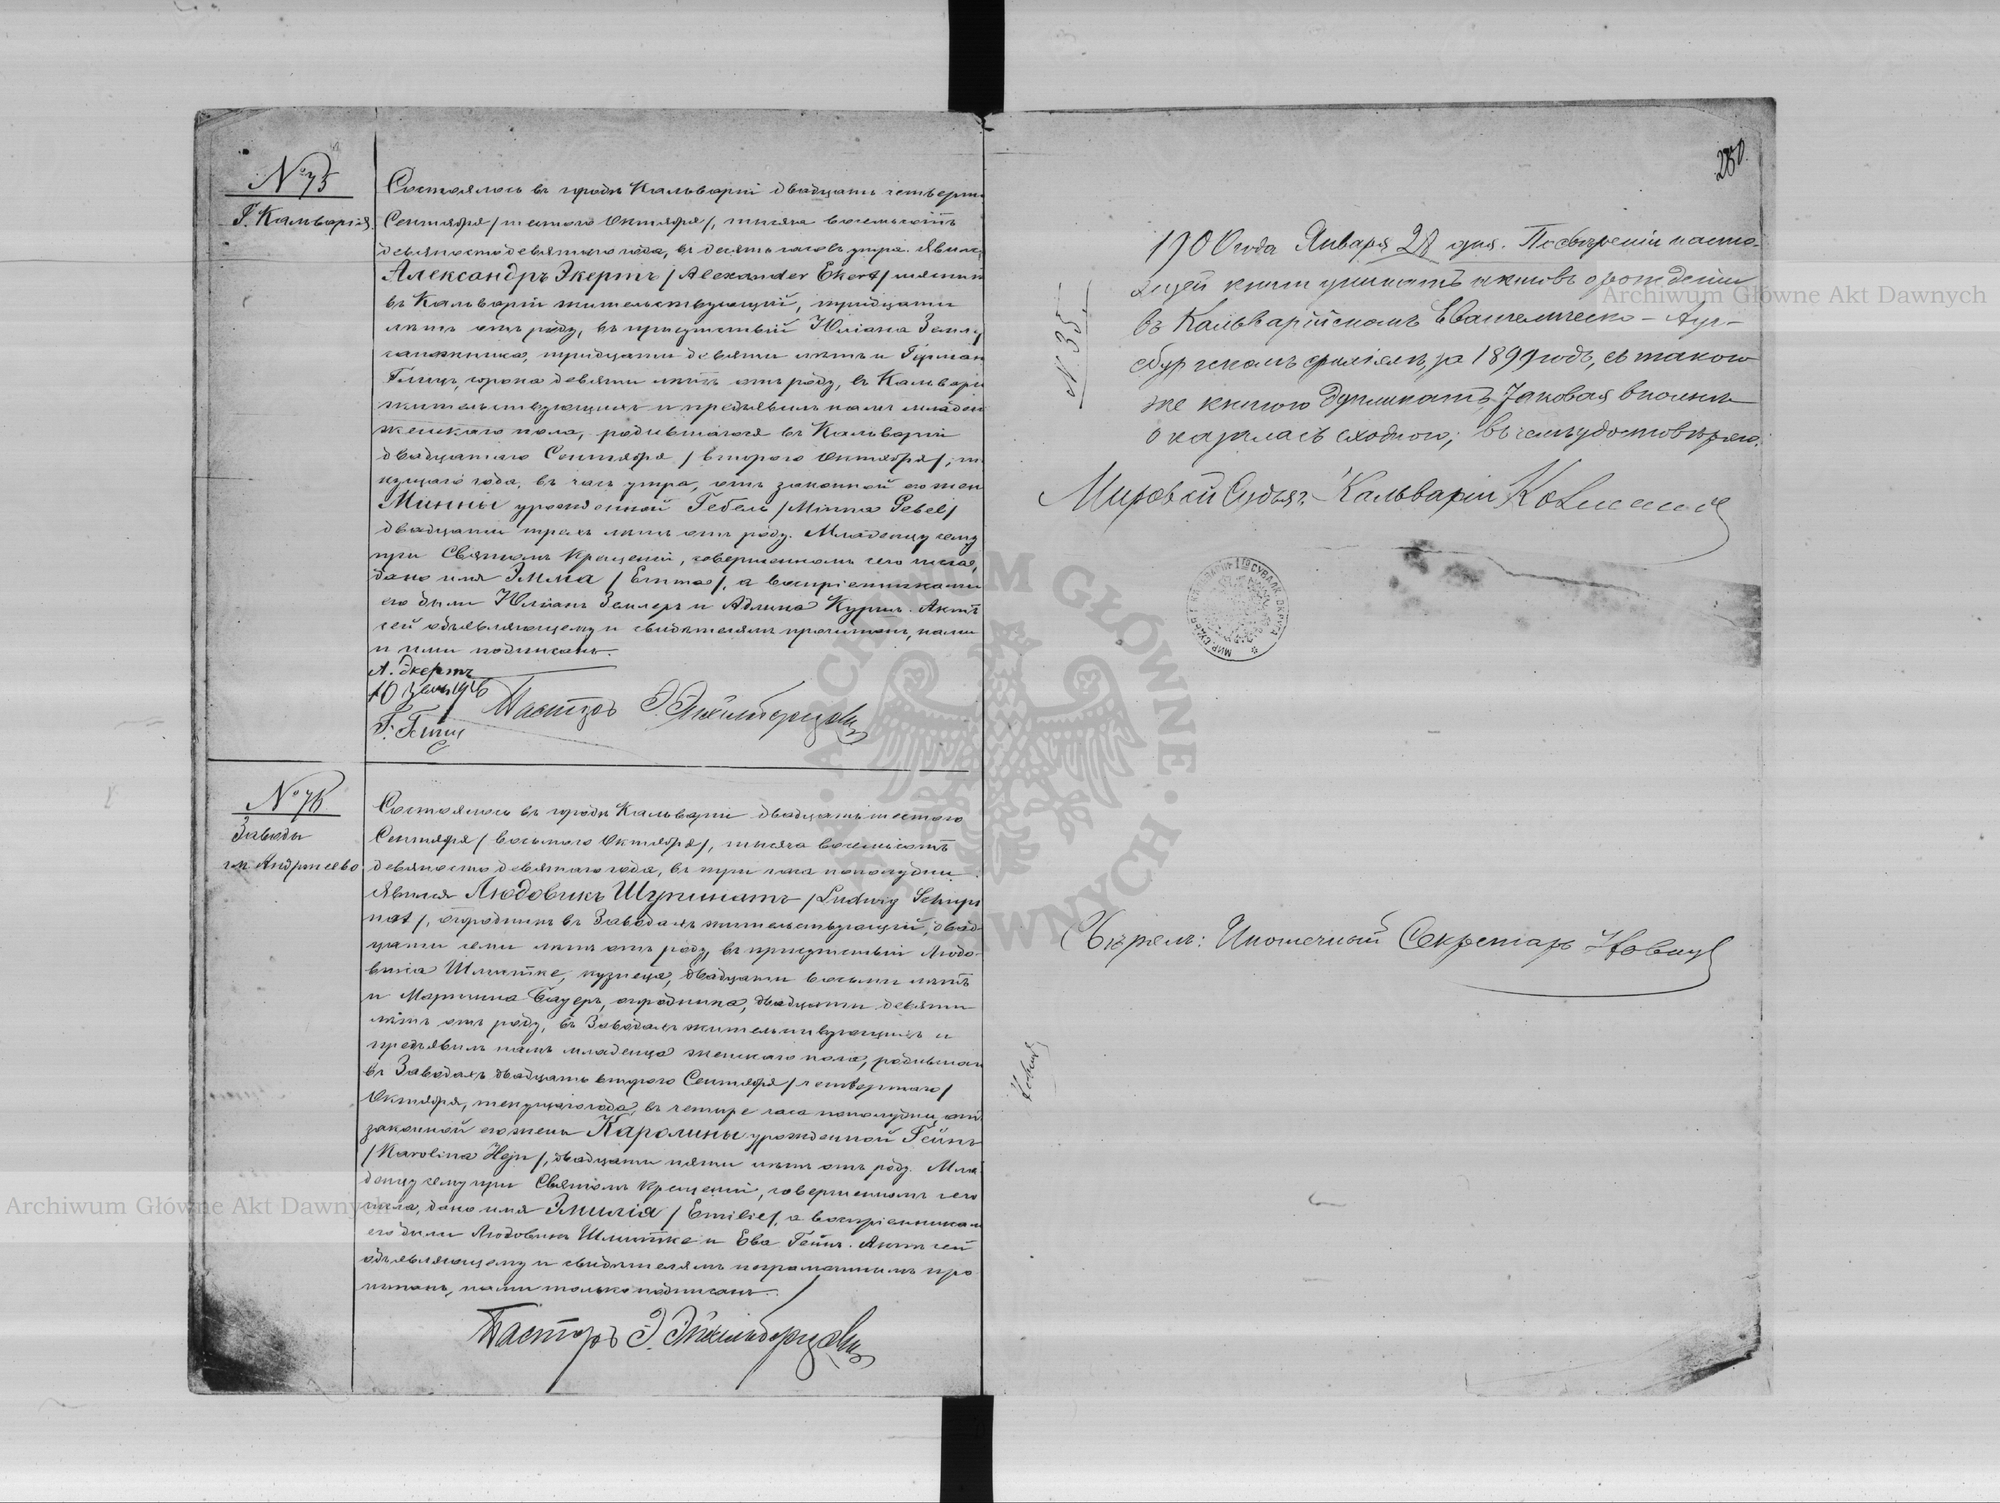 № 75
Г. Кальварія.
Состоялось въ городѣ Кальваріи двадцать четверта
Сентября /шестого Октября/, тысяча восемьсотъ
девяносто девятаго года, въ десять часовъ утра. Явился
Александръ Экертъ /Alexander Ekert/
въ Кальваріи жительствующій, тридцати
лѣтъ отъ роду, въ присутствіи Юліана Зеилер
сапожника, тридцати девяти лѣтъ и Герман
сорока девяти лѣтъ отъ роду, въ Кальваріи
жительствующихъ и предъявилъ намъ младен
женскаго пола, родившагося въ Кальваріи
двадцатаго Сентября /второго Октября/, те
кущаго года, въ часъ утра, отъ законной его жен
Минны урожденной Гебель /Minna Gebel/
двадцати трехъ лѣтъ отъ роду. Младенцу сему
при Святомъ Крещеніи, совершенномъ сего числа,
дано имя Эмма /Emma/, а воспріемниками
его были Юліанъ Зеилеръ и Адлина Актъ
сей объявляющему и свидѣтелямъ прочитанъ, нами
и ими подписанъ.
А. Экертъ
Ю Зеилеръ
Пасторъ Э.
Г.
№ 76
Заводы
гм. Андржеево
Состоялось въ городѣ Кальваріи двадцать шестого
Сентября /восьмого Октября/, тысяча восемьсотъ
девяносто девятаго года, въ три часа пополудни.
Явился Людовикъ Шупинатъ /Ludwig Schupi
nat/, огородникъ въ Заводахъ жительствующій, двад
цати семи лѣтъ отъ роду, въ присутствіи Людо
вика Шлитке, кузнеца, двадцати восьми лѣтъ
и Мартина Бауеръ, огородника, двадцати девяти
лѣтъ отъ роду, въ Заводахъ жительствующихъ и
предъявилъ намъ младенца женскаго пола, родившаг
въ Заводахъ двадцать второго Сентября /четвертаго/
Октября, текущаго года, въ четыре часа пополудни отъ
законной его жены Каролины урожденной Гейнъ
/Karolina Hejn/, двадцати пяти лѣтъ отъ роду. Мла
денцу сему при Святомъ Крещеніи, совершенномъ сего
числа, дано имя Эмилія /Emilie/, а воспріемникам
его были Людовикъ Шлитке и Ева Гейнъ. Актъ сей
объявляющему и свидѣтелямъ неграмотнымъ про
читанъ, нами только подписанъ.
Пасторъ Э.
280.
№ 35
1900 года Января 28 дня. По свѣреніи насто-
ящей книги уникатъ актовъ о рожденіи
въ Кальварійскомъ Евангелическо-Ауг-
сбургскомъ филіялѣ, за 1899 годъ, съ такою
же книгою дупликатъ, таковая вполнѣ
оказалась сходною; въ чемъ удостовѣряю.
Мировой Судья г. Кальваріи
МИР. СУДЬЯ Г. КАЛЬВАРІИ 1 ГО СУВАЛК. ОКРУГА
Свѣрялъ: Ипотечный Секретарь
Archiwum Główne Akt Dawnych
Archiwum Główne Akt Dawnych
ARCHIWUM GŁÓWNE AKT DAWNYCH